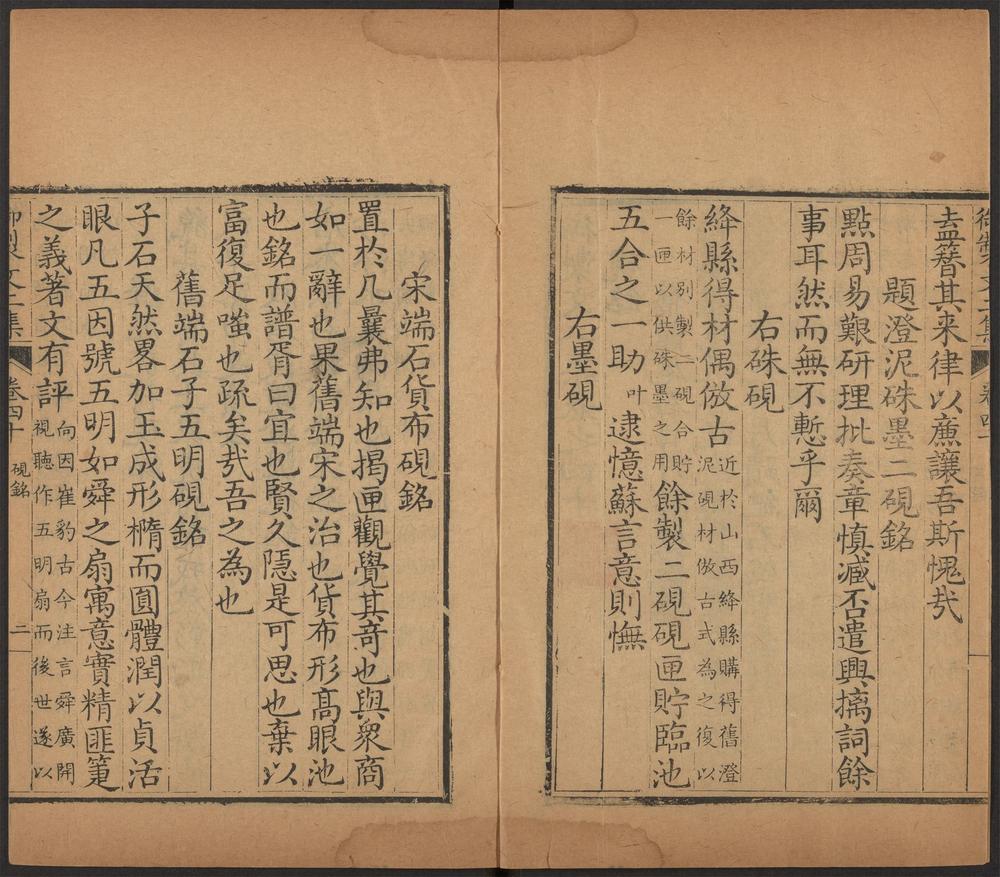 御製文二集
卷四十
盍簪其来律以廉讓吾斯愧㢤
題澄泥硃墨二硯銘
點周易艱研理批奏章慎滅否遣興摛詞餘
事耳然而無不慙乎爾
右硃硯
絳縣得材偶倣古
近於山西絳縣購得舊澄
泥硯材倣古式為之復以
餘材別製二硯合貯
一匣以供硃墨之用
餘製二硯硯匣貯臨池
五合之一助
叶
逮憶蘇言意則憮
右墨硯
宋端石貨布硯銘
置於几曩弗知也揭匣觀覺其竒也與衆商
如一辭也果舊端宋之治也貨布形高眼池
也銘而譜胥曰宜也賢久隱是可思也棄以
富復足嗤也疏矣㢤吾之為也
舊端石子五明硯銘
子石天然畧加玉成形橢而圓體潤以貞活
眼凡五因號五明如舜之扇寓意實精匪箑
之義著文有評
向因崔豹古今注言舜廣開
視聽作五明扇而後世遂以
御製文二集
卷四十
硯銘
二